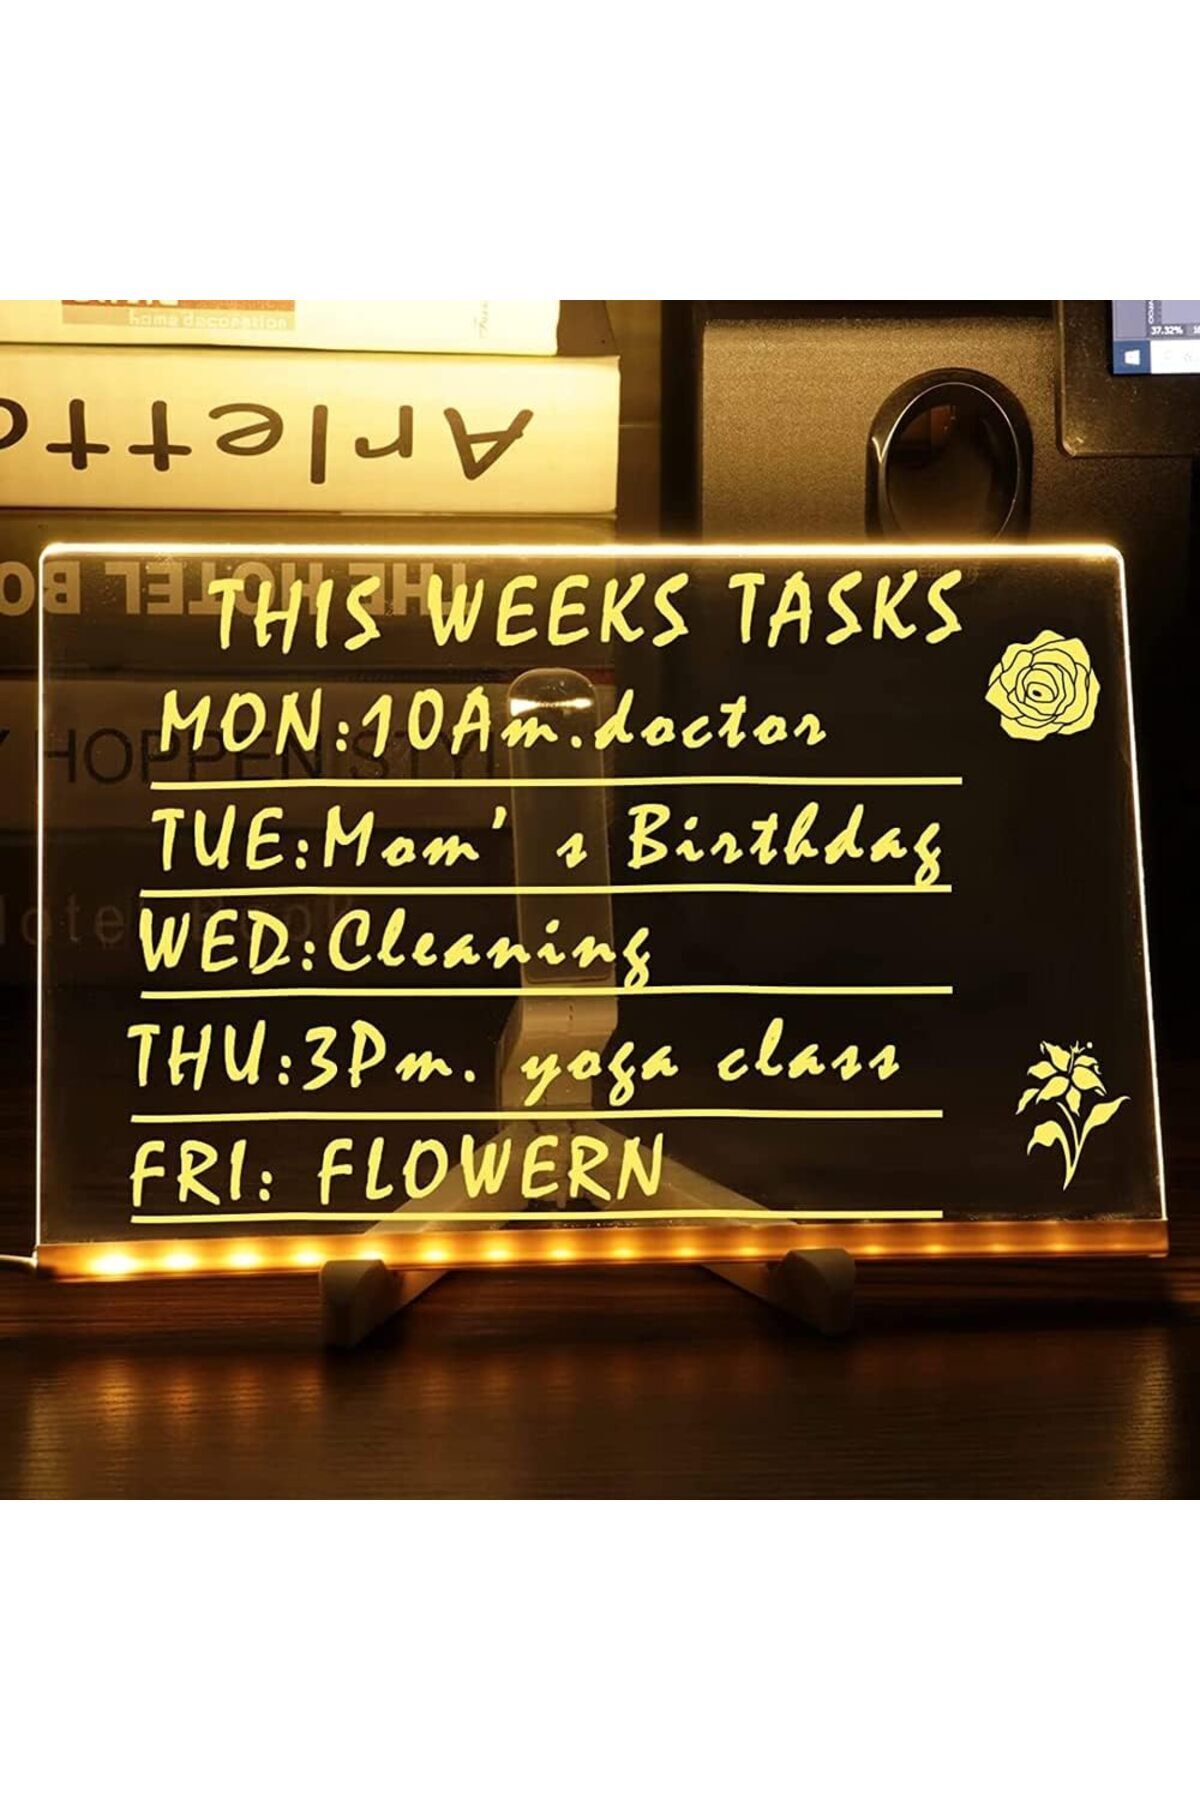 home decoration
Arletto
THE HOTEL BO
HOPPEN STYL
37.32%
THIS WEEKS TASKS
MON:10Am.doctor
TUE:Mom's Birthday
WED:Cleaning
THU:3Pm. yoga class
FRI: FLOWERN